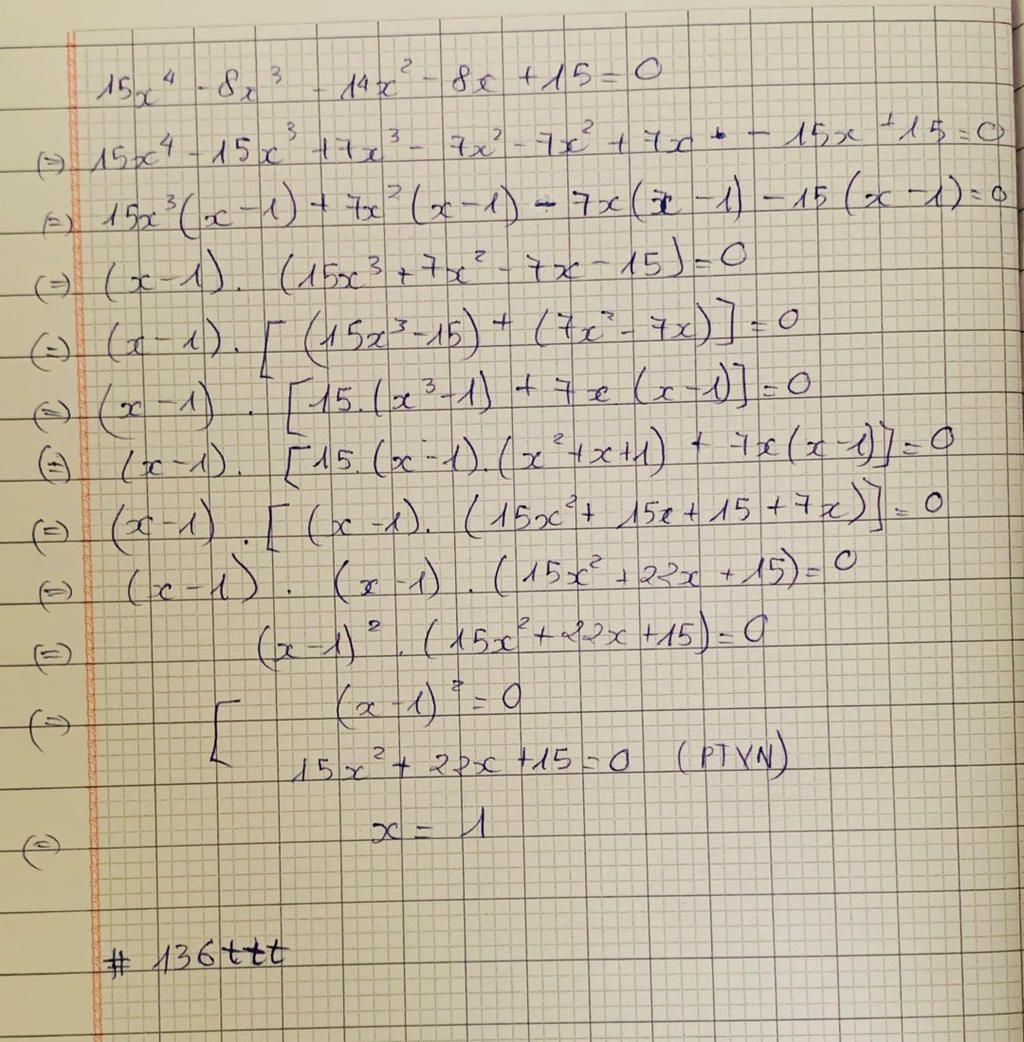 15x⁴ - 8x³ - 14x² - 8x + 15 = 0
(=) 15x⁴ - 15x³ + 7x³ - 7x² - 7x² + 7x - 15x + 15 = 0
(=) 15x³(x - 1) + 7x²(x - 1) - 7x(x - 1) - 15(x - 1) = 0
(=) (x - 1). (15x³ + 7x² - 7x - 15) = 0
(=) (x - 1). [(15x³ - 15) + (7x² - 7x)] = 0
(=) (x - 1). [15.(x³ - 1) + 7x(x - 1)] = 0
(=) (x - 1). [15.(x - 1).(x² + x + 1) + 7x(x - 1)] = 0
(=) (x - 1). [(x - 1). (15x² + 15x + 15 + 7x)] = 0
(=) (x - 1). (x - 1). (15x² + 22x + 15) = 0
(=) (x - 1)². (15x² + 22x + 15) = 0
(=) [ (x - 1)² = 0
15x² + 22x + 15 = 0 (PTVN)
(=) x = 1
# 136ttt